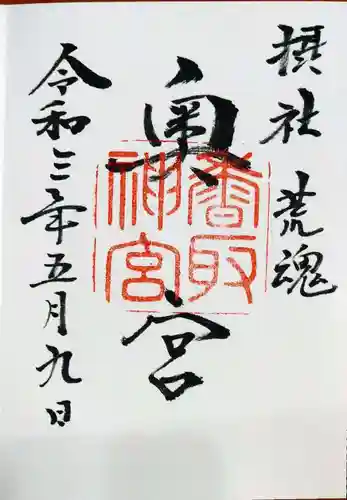 摂社 荒魂
奥宮
香取神宮
令和三年五月九日